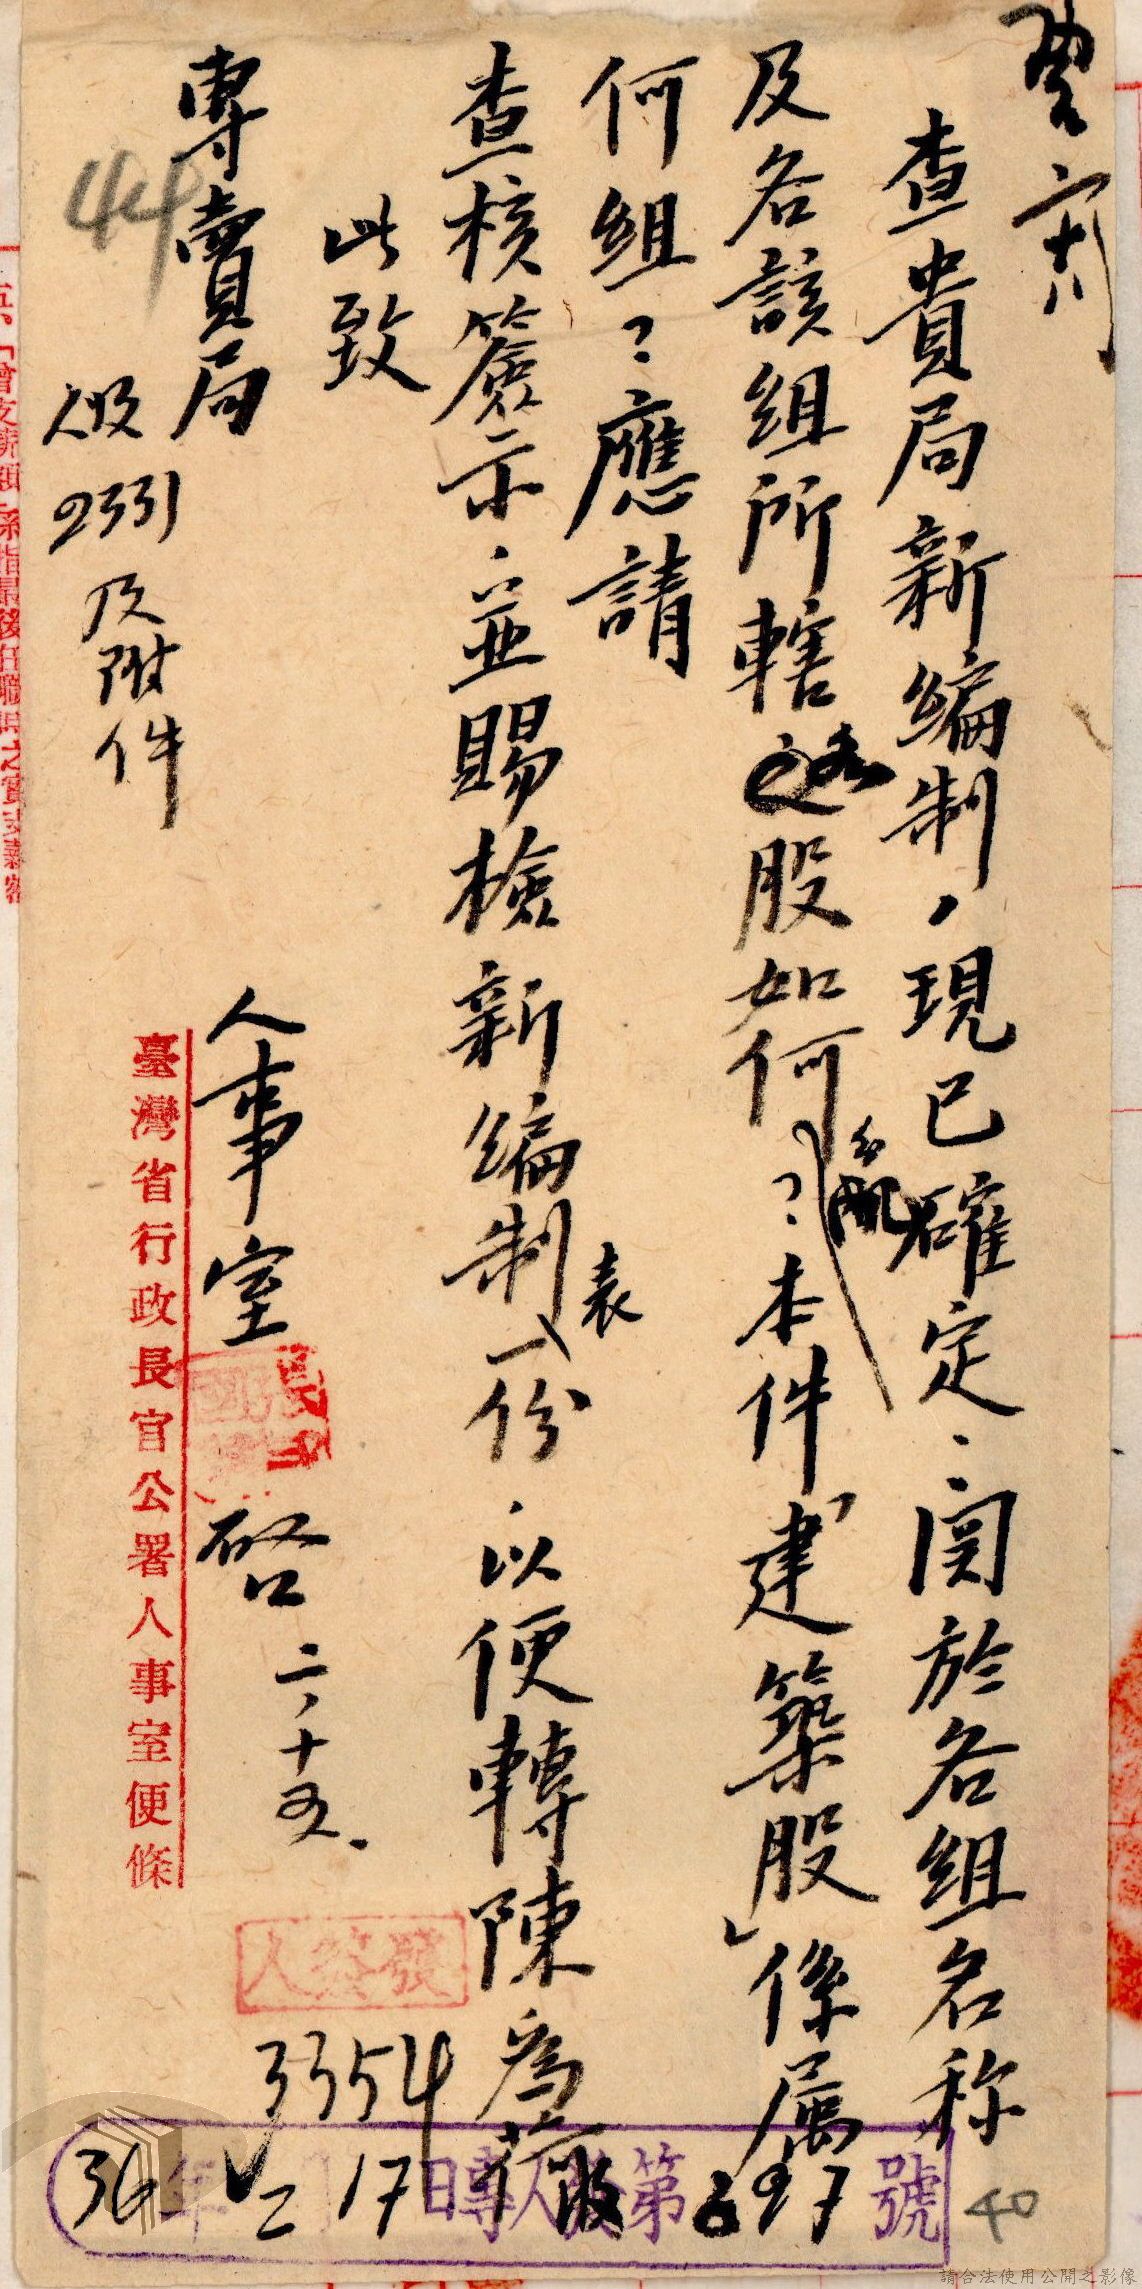 查貴局新編制，現已確定、関於各組名称
及各該組所轄之各股如何？本件「建築股」係属
何組？應請
查核簽示、並賜檢新編制表一份以便轉陳為荷
此致
專賣局
人事室 啓 二、十五.
臺灣省行政長官公署人事室便條
44
收2331及附件
3354
36年二月17日專人收第697號
40
請合法使用公開之影像